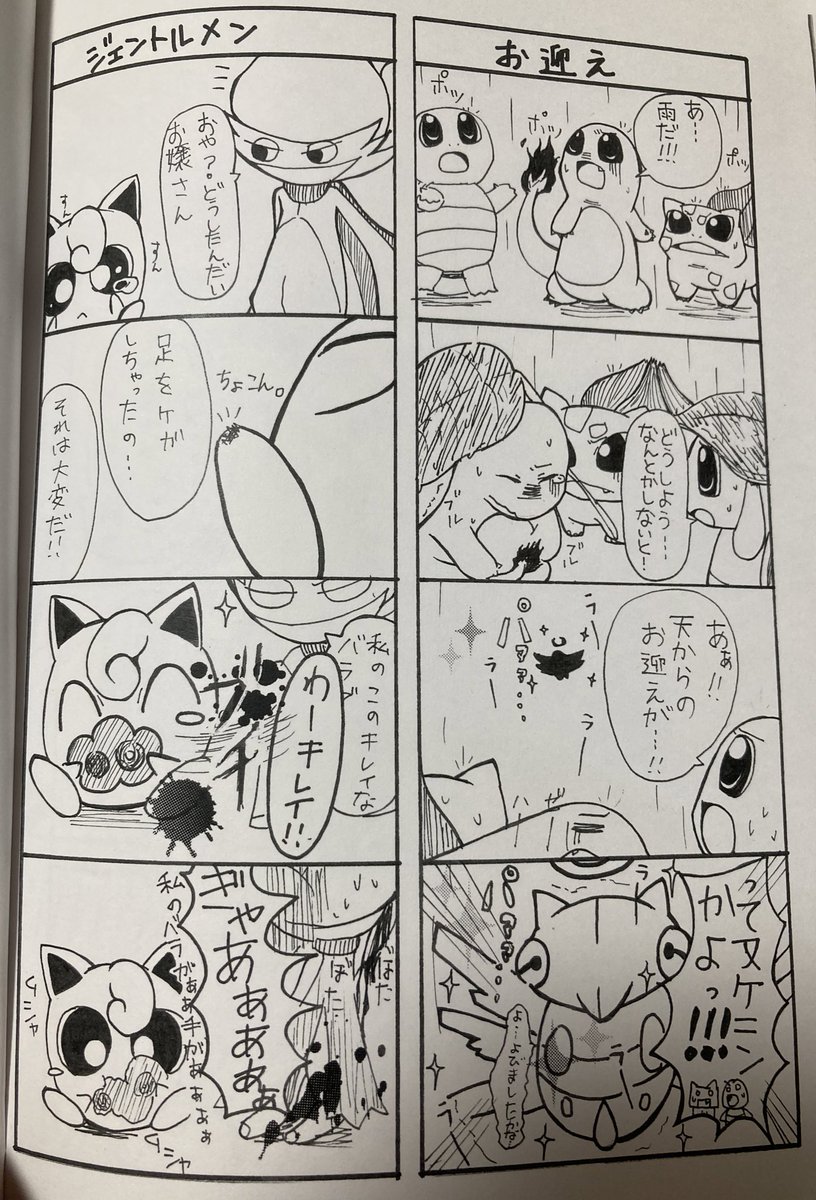 お迎え
あ…
雨だ!!!
ポッ
ポッ
ポッ
どうしよう…
なんとかしないと!
ブル
ブル
あぁ!!
天からの
お迎えが…!!
ラ
ラー
ラー
って又ケニン
かよっ!!!
よ…よびましたかな…
ジェントルメン
おや?どうしたんだい
お嬢さん
すん
すん
ちょこん。
足をケガ
しちゃったの…
それは大変だ!!
私のこのキレイな
バラを
わーキレイ!!
ぼた
ぼた
ぎゃあぁぁぁぁ
私のバラがぁぁ手がぁぁぁぁ
グシャ
グシャ